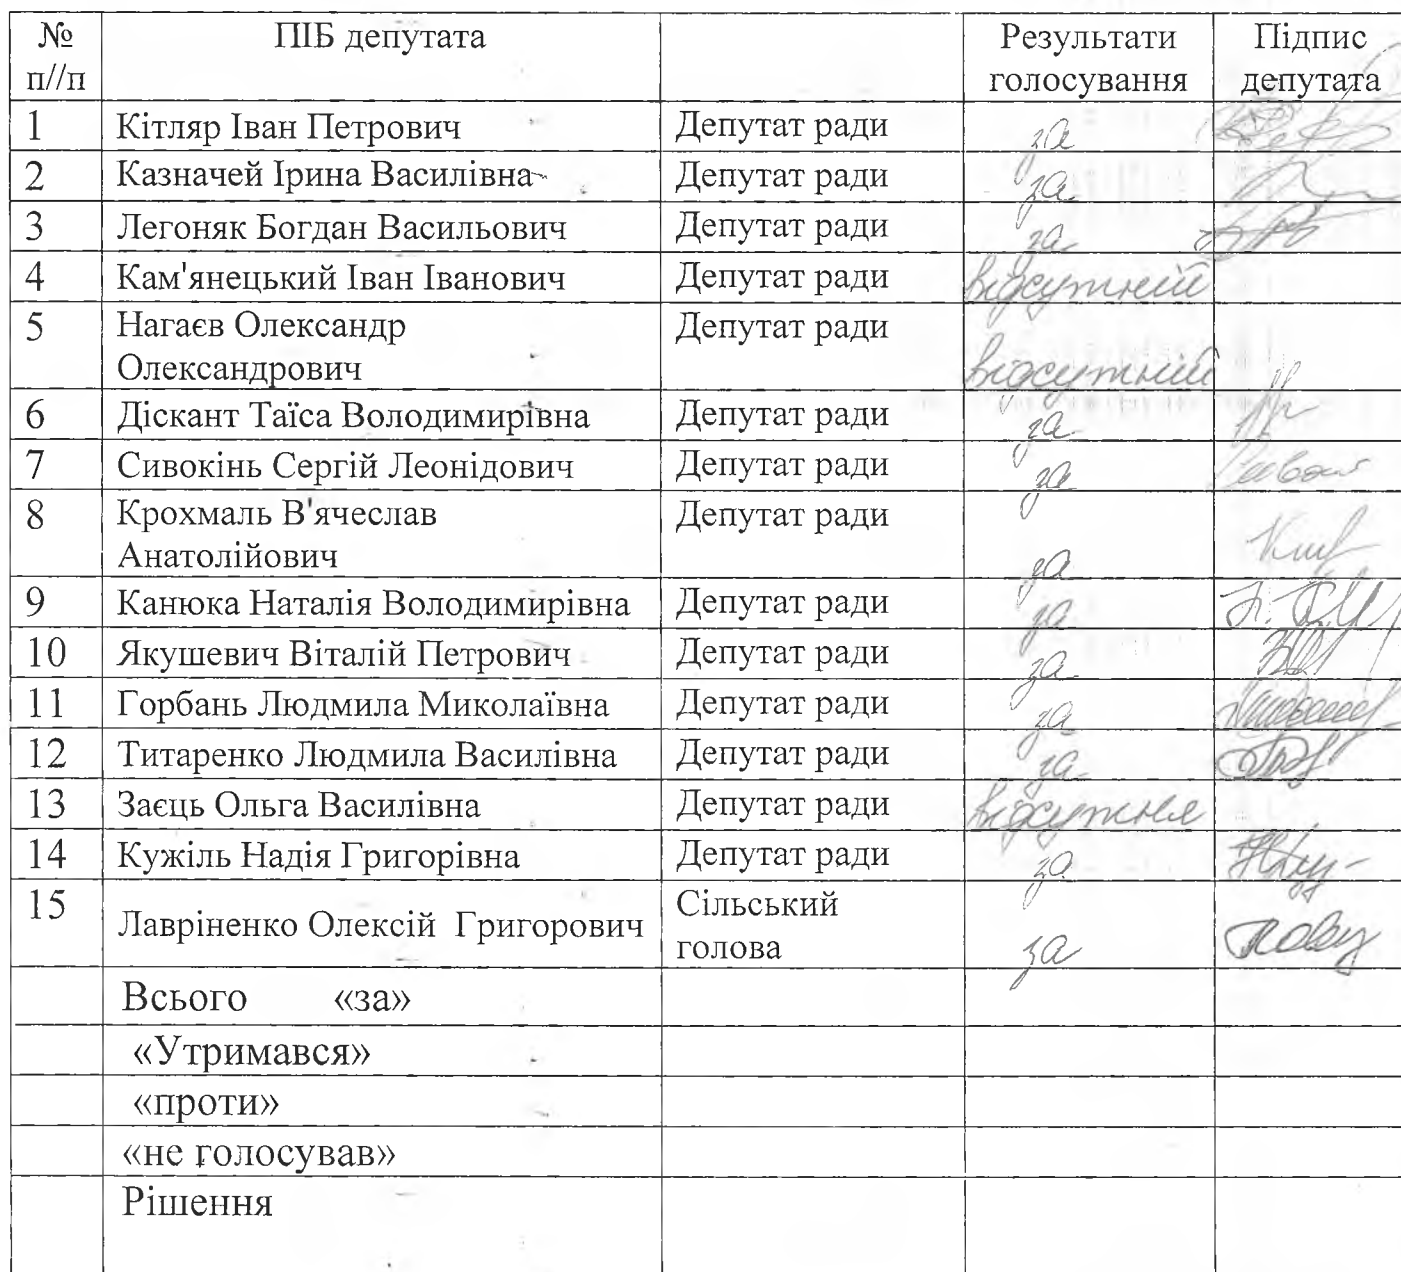 № п//п ПІБ депутата Результати голосування Підпис депутата
1 Кітляр Іван Петрович Депутат ради за
2 Казначей Ірина Василівна Депутат ради за
3 Легоняк Богдан Васильович Депутат ради за
4 Кам'янецький Іван Іванович Депутат ради відсутній
5 Нагаєв Олександр Депутат ради
Олександрович відсутній
6 Діскант Таїса Володимирівна Депутат ради за
7 Сивокінь Сергій Леонідович Депутат ради за
8 Крохмаль В'ячеслав Депутат ради
Анатолійович за
9 Канюка Наталія Володимирівна Депутат ради за
10 Якушевич Віталій Петрович Депутат ради за
11 Горбань Людмила Миколаївна Депутат ради за
12 Титаренко Людмила Василівна Депутат ради за
13 Заєць Ольга Василівна Депутат ради відсутня
14 Кужіль Надія Григорівна Депутат ради за
15 Лавріненко Олексій Григорович Сільський голова за
Всього «за»
«Утримався»
«проти»
«не голосував»
Рішення